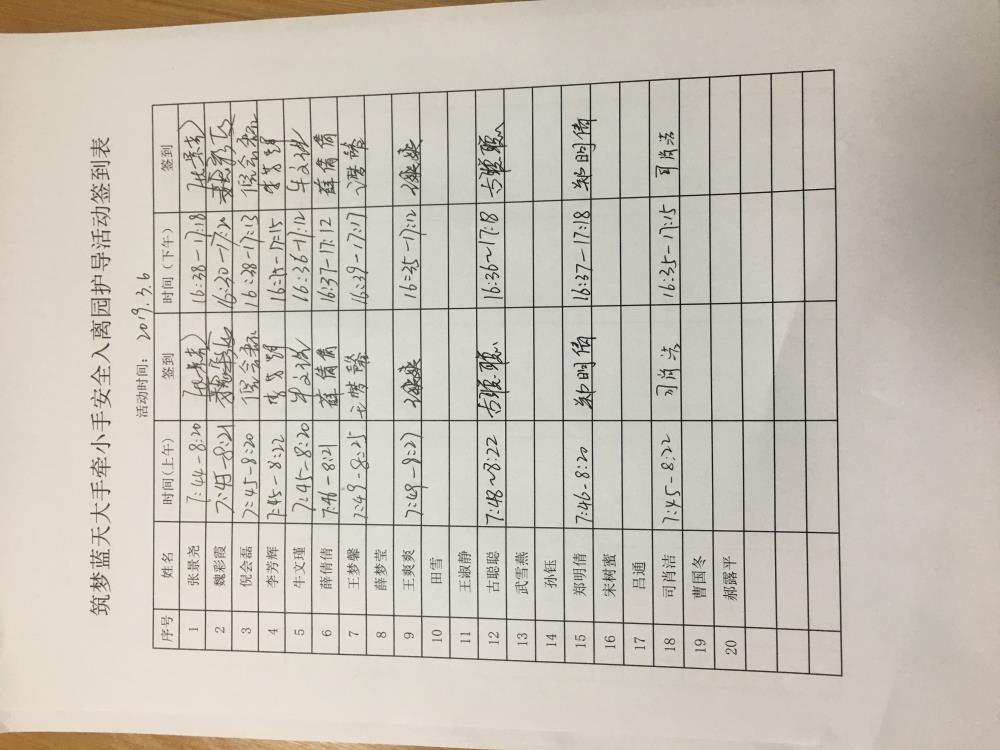 筑梦蓝天大手牵小手安全入离园护导活动签到表
活动时间: 2019.3.6
序号 姓名 时间(上午) 签到 时间(下午) 签到
1 张景尧 7:44-8:20 张景尧 16:38-17:18 张景尧
2 魏彩霞 7:45-8:21 魏彩霞 16:30-17:20 魏彩霞
3 倪会磊 7:45-8:20 倪会磊 16:38-17:13 倪会磊
4 李芳辉 7:45-8:22 李芳辉 17:15
5 牛文瑾 7:45-8:20 牛文瑾 16:36-17:12 牛文瑾
6 薛倩倩 7:46-8:21 薛倩倩 16:37-17:12 薛倩倩
7 王梦馨 7:49-8:25 王梦馨 16:39-17:17 王梦馨
8 薛梦莹
9 王爽爽 7:49-8:27 王爽爽 16:35-17:12 王爽爽
10 田雪
11 王淑静
12 古聪聪 7:48~8:22 古聪聪 16:36~17:18 古聪聪
13 武雪燕
14 孙钰
15 郑明倩 7:46-8:20 郑明倩 16:37-17:18 郑明倩
16 宋树蜜
17 吕通
18 司肖洁 7:45-8:22 司肖洁 16:35-17:15 司肖洁
19 曹国冬
20 郝露平